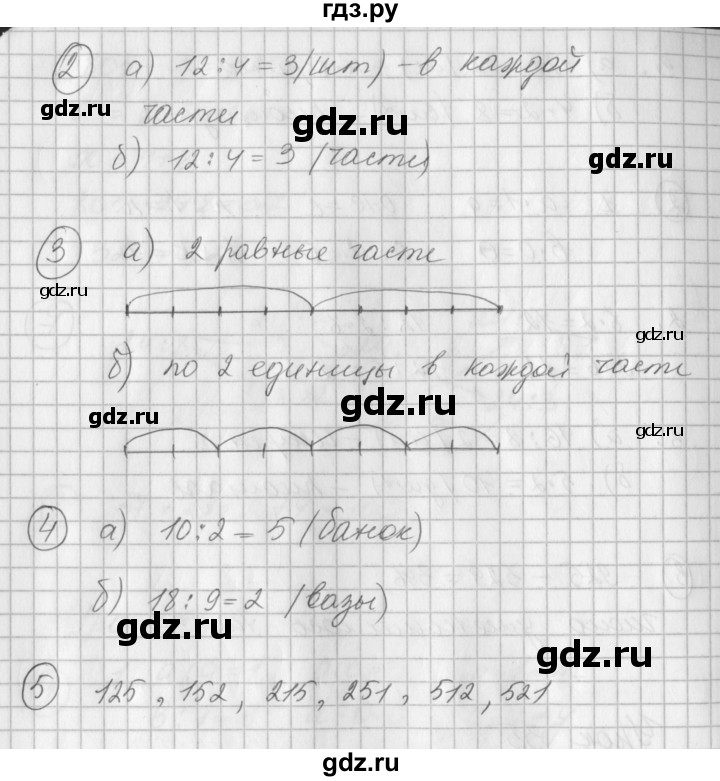 гдз.ру
2 а) 12:4=3(шт) - в каждой
gdz.ru
части
gdz.ru
б) 12:4=3 (части)
gdz.ru
3 а) 2 равные части
gdz.ru
gdz.ru
б) по 2 единицы в каждой части
gdz.ru
gdz.ru
gdz.ru
4 а) 10:2=5 (банок)
б) 18:9=2 (вазы)
gdz.ru
gdz.ru
5 125, 152, 215, 251, 512, 521
gdz.ru